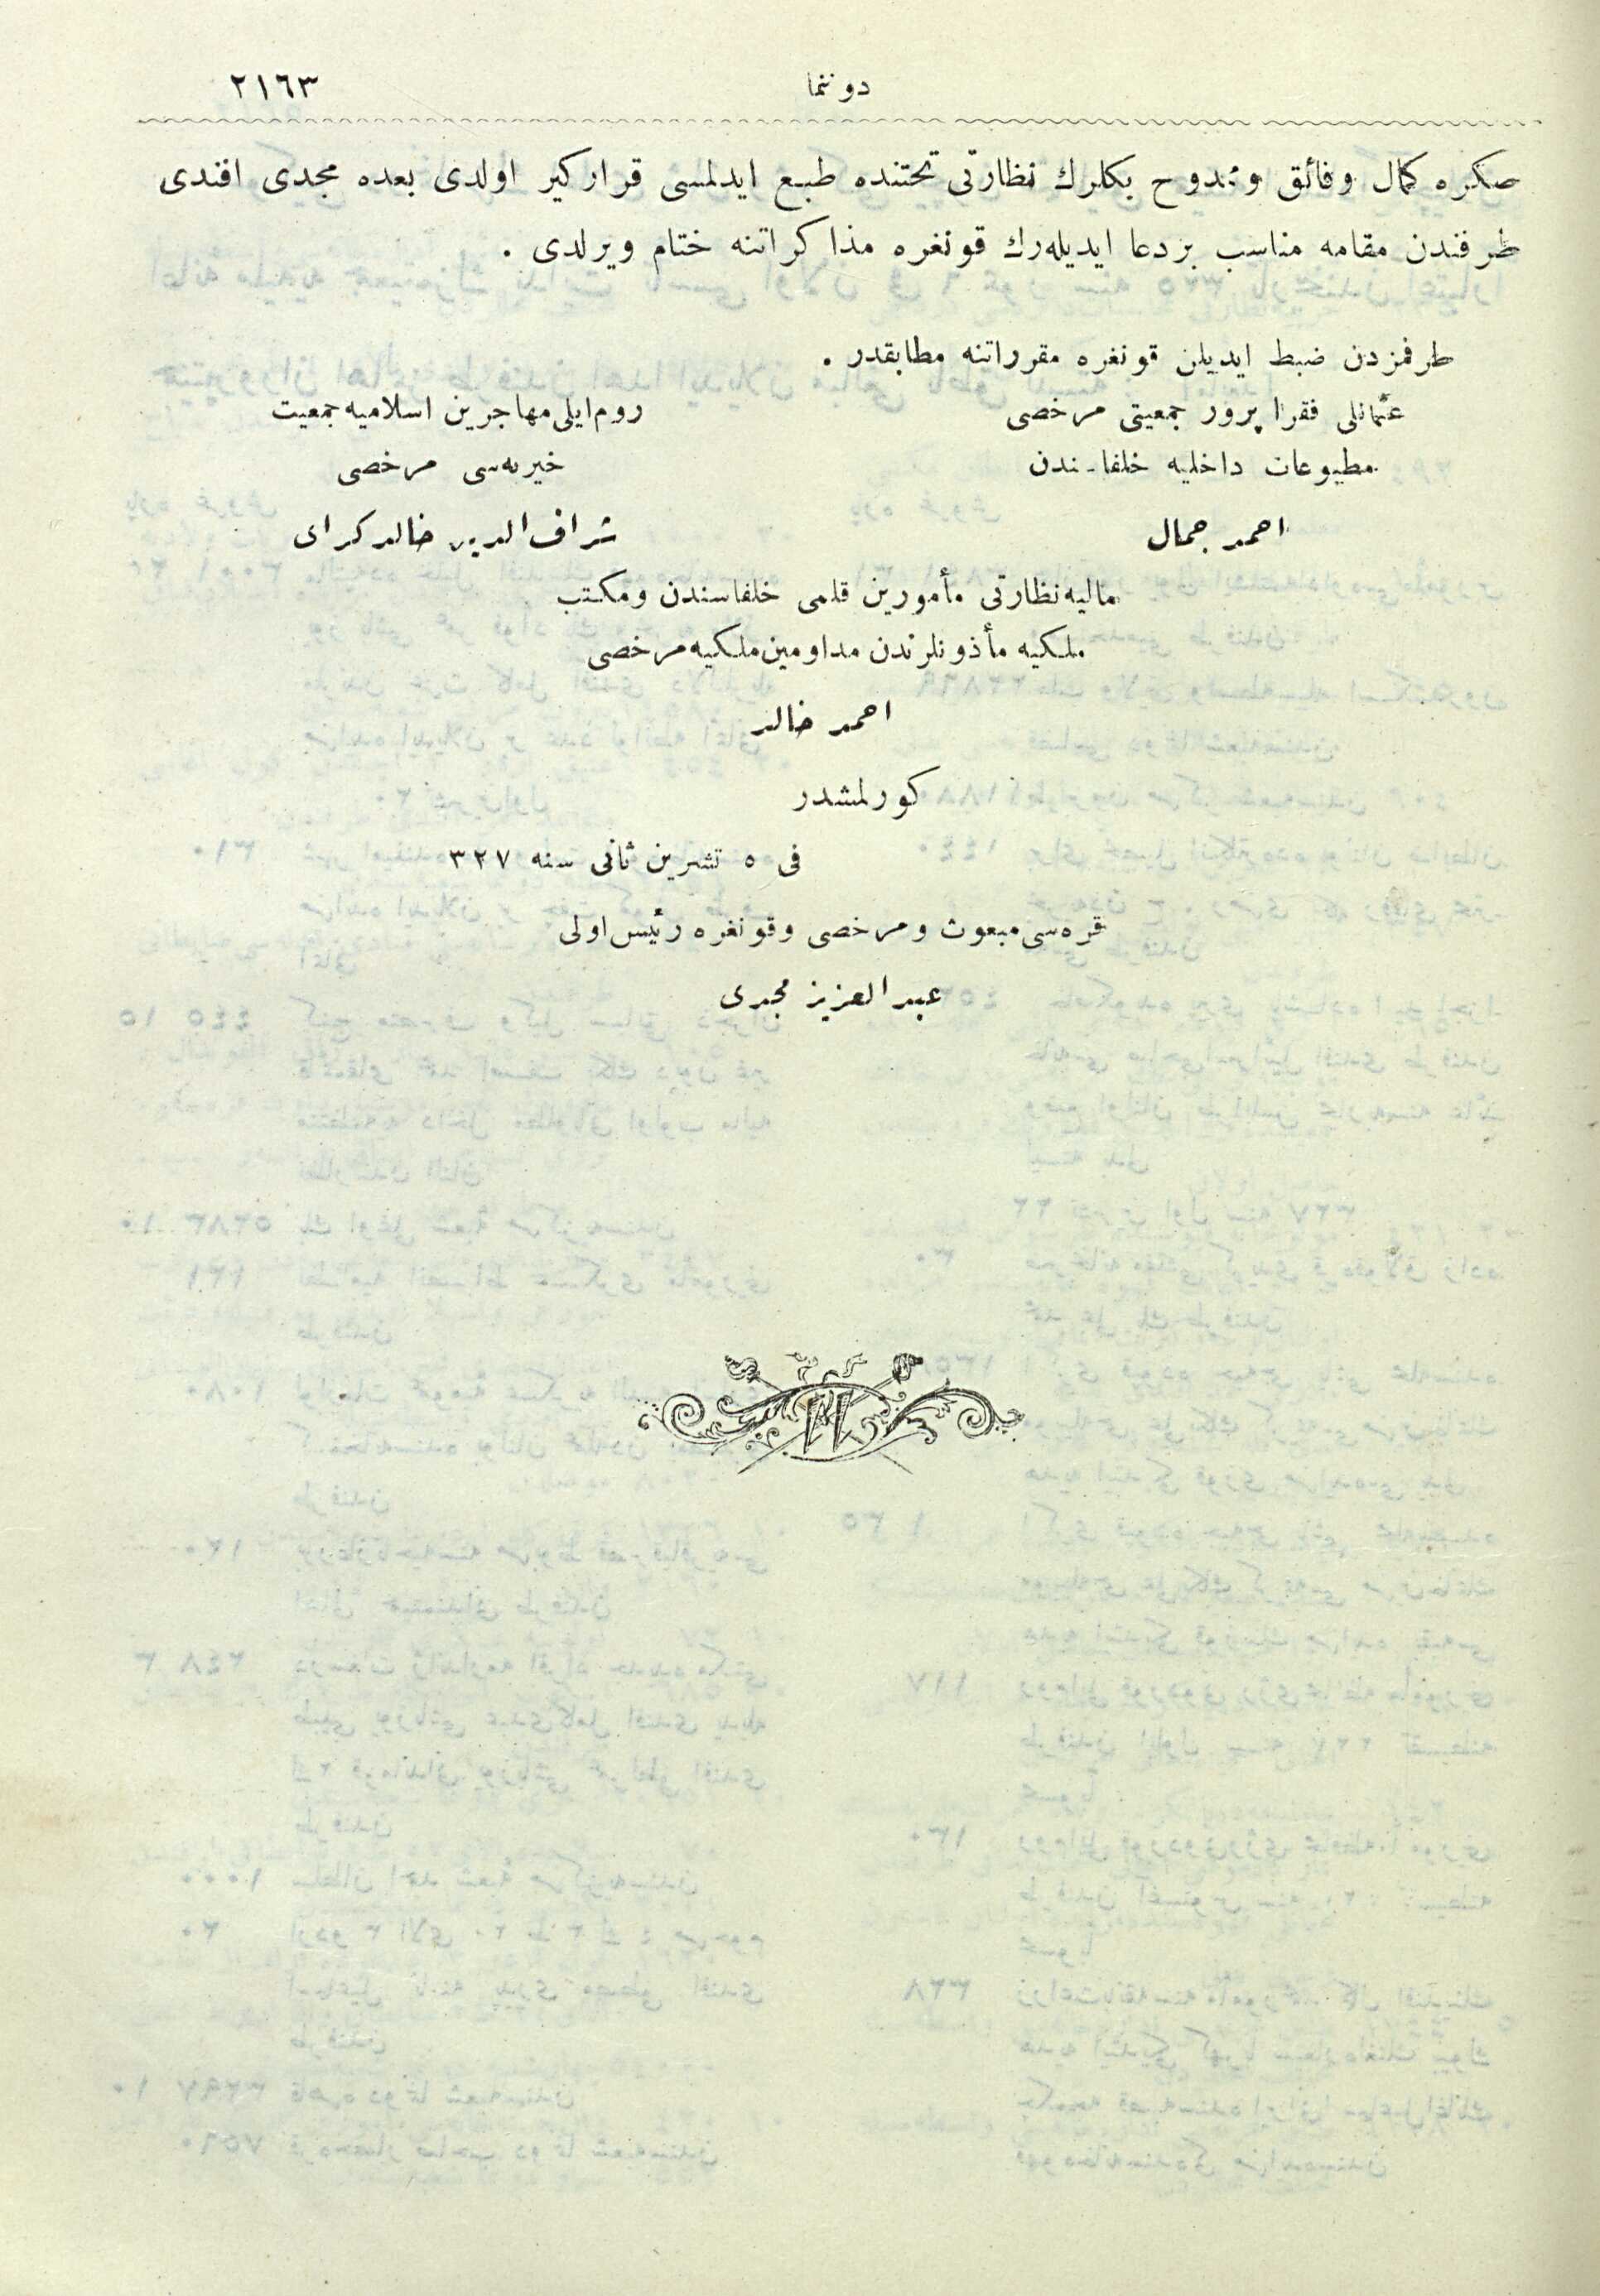 دوننما
٢١٦٣
صكره كمال وفائق وممدوح بكلرك نظارتى تحتنده طبع ايدلمسى قراركير اولدى بعده مجدى افندى
طرفندن مقامه مناسب بردعا ايديله‌رك قونغره مذاكراتنه ختام ويرلدى .
طرفمزدن ضبط ايديلن قونغره مقرراتنه مطابقدر .
عثمانلى فقرا پرور جمعيتى مرخصى
مطبوعات داخليه خلفاسندن
احمد جمال
روم‌ايلى مهاجرين اسلاميه جمعيت
خيريه‌سى مرخصى
شراف‌الدين خالدكراى
ماليه نظارتى مأمورين قلمى خلفاسندن ومكتب
ملكيه مأذونلرندن مداومين ملكيه مرخصى
احمد خالد
كورلمشدر
فى ٥ تشرين ثانى سنه ٣٢٧
قره‌سى مبعوث ومرخصى وقونغره رئيس اولى
عبدالعزيز مجدى